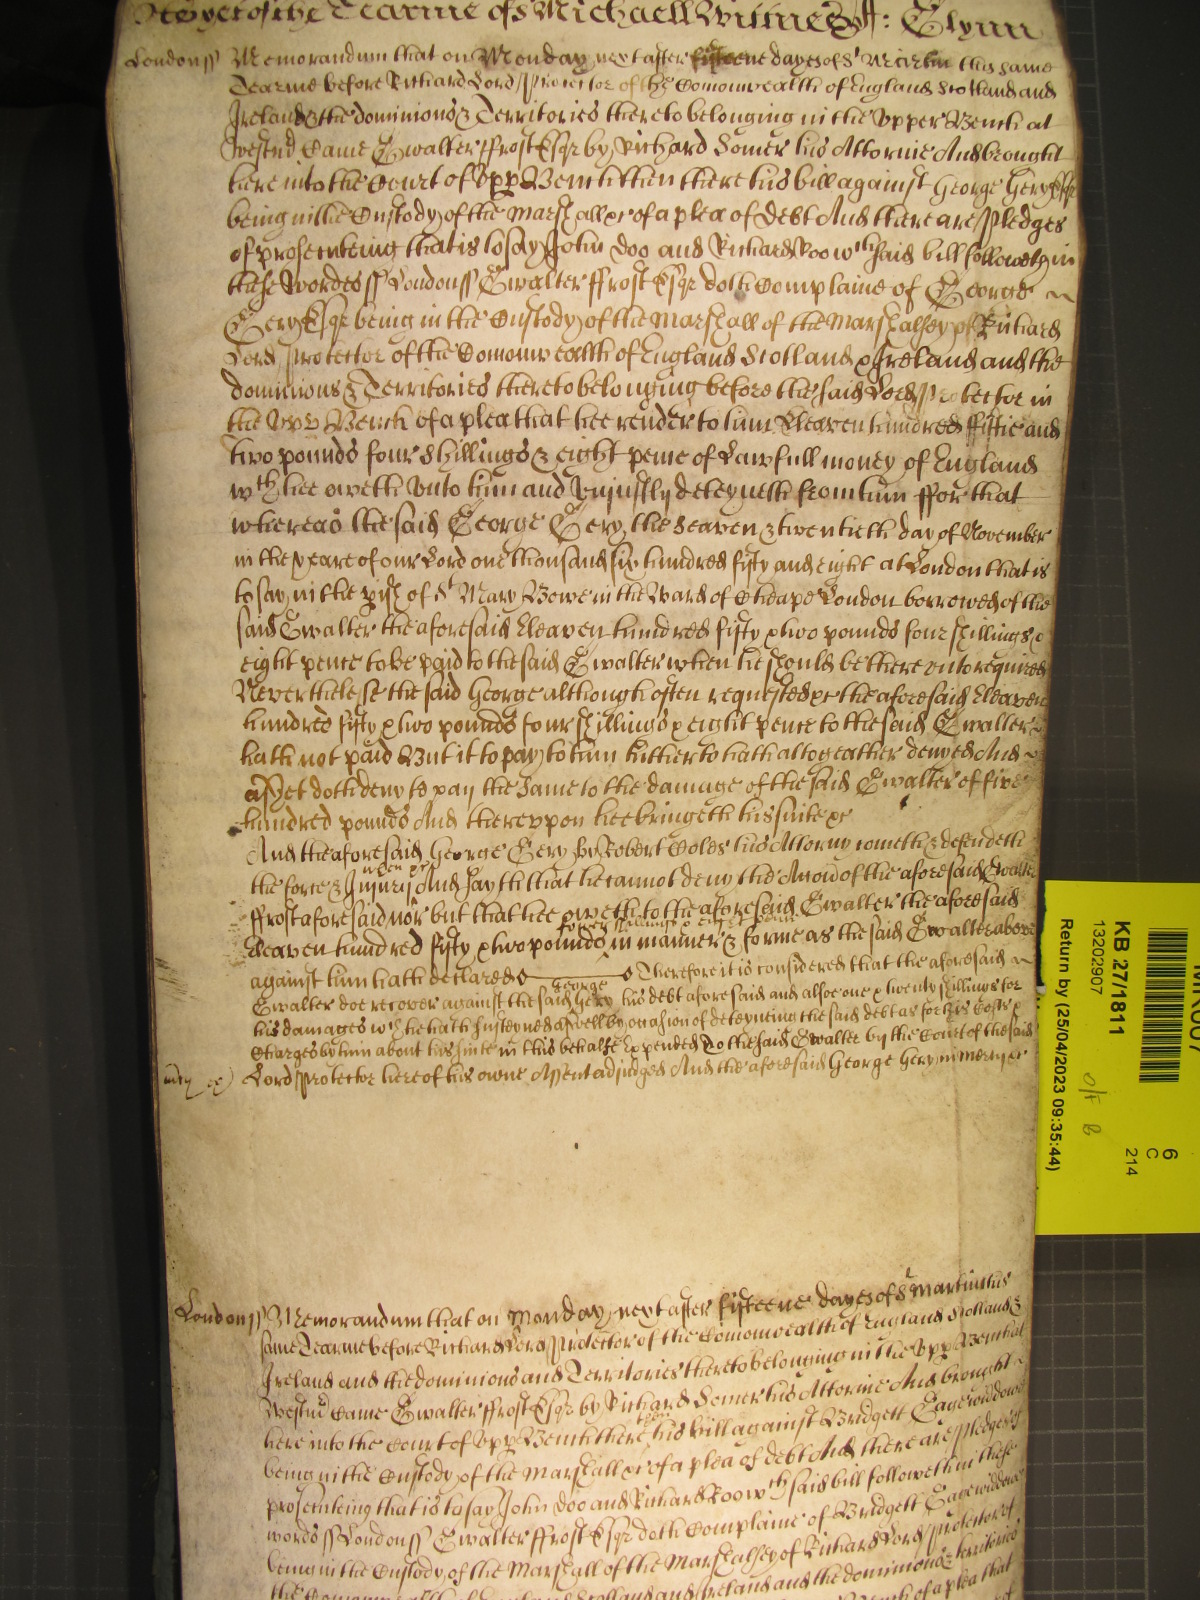 yet of the Tearme of St Michaell Wittnes J: Glynn
London ss Memorandum that on Monday next after fifteene dayes of St Martin this same
Tearme before Richard Lord Protector of the Comonwealth of England Scotland and
Ireland & the dominions & Territories thereto belonging in the Upper Bench at
Westmr Came Gwalter ffrost Esqr by Richard Somer his Attornie And brought
here into the Court of Upp Bench then there his bill against George Gery Esqr
being in the Custody of the Marshall &c of a plea of debt And there are Pledges
of prosecuteing that is to say John Doo and Richard Roo wch said bill followeth in
these Wordes ss London ss Gwalter ffrost Esqr doth Complaine of George
Gery Esqr being in the Custody of the Marshall of the Marshalsey of Richard
Lord Protector of the Comonwealth of England Scotland & Ireland and the
dominions & Territories thereto belonging before the said Lord Protector in
the Upp Bench of a plea that hee render to him Eleaven hundred fiftie and
two pounds four Shillings & eight pence of Lawfull money of England
wch hee oweth unto him and Unjustly deteyneth from him ffor that
whereas the said George Gery the seaven & twentieth day of November
in the yeare of our Lord one thousand six hundred fifty and eight at London that is
to say in the pish of St Mary Bowe in the Ward of Cheape London borrowed of the
said Gwalter the aforesaid Eleaven hundred fifty & two pounds four shillings &
eight pence to be paid to the said Gwalter when he should be thereunto required
Neverthelesse the said George although often requested &c the aforesaid Eleaven
hundred fifty & two pounds four shillings & eight pence to the said Gwalter
hath not paid But it to pay to him hitherto hath altogeather denyed And
as yet doth deny to pay the same to the damage of the said Gwalter of five
hundred pounds And thereupon hee bringeth his suite &c
And the aforesaid George Gery by Robert Coles his Attorny cometh & defendeth
the force & Injury when &c And saith that he cannot deny the Accon of the aforesaid Gwalter
ffrost aforesaid nor but that hee oweth to the aforesaid Gwalter the aforesaid
Eleaven hundred fifty & two pounds fower shillings & eight pence in manner & forme as the said Gwalter above
against him hath declared Therefore it is considered that the aforesaid
Gwalter doe recover against the said George Gery his debt aforesaid and alsoe one & twenty shillings for
his damages wch he hath susteyned aswell by occasion of deteyneing the said debt as for his Costs &
Charges by him about his suite in this behalfe Expended to the said Gwalter by the Court of the said
mcy &c Lord Protector here of his owne Assent adjudged And the aforesaid George Gery in mercy &c
London ss Memorandum that on Monday next after fifteene dayes of St Martin this
same Tearme before Richard Lord Protector of the Comonwealth of England Scotland &
Ireland and the dominions and Territories thereto belonging in the Upp Bench at
Westmr Came Gwalter ffrost Esqr by Richard Somer his Attornie And brought
here into the Court of Upp Bench then there his bill against Bridgett widdowe
being in the Custody of the Marshall &c of a plea of debt And there are pledges of
prosecuteing that is to say John Doo and Richard Roo wch said bill followeth in these
words ss London ss Gwalter ffrost Esqr doth Complaine of Bridgett widdowe
being in the Custody of the Marshall of the Marshalsey of Richard Lord Protector of
the Comonwealth of England Scotland and Ireland and the dominions & territories
of a plea that
KB 27/1811
13202907
Return by (25/04/2023 09:35:44)
6
C
214
O/F B